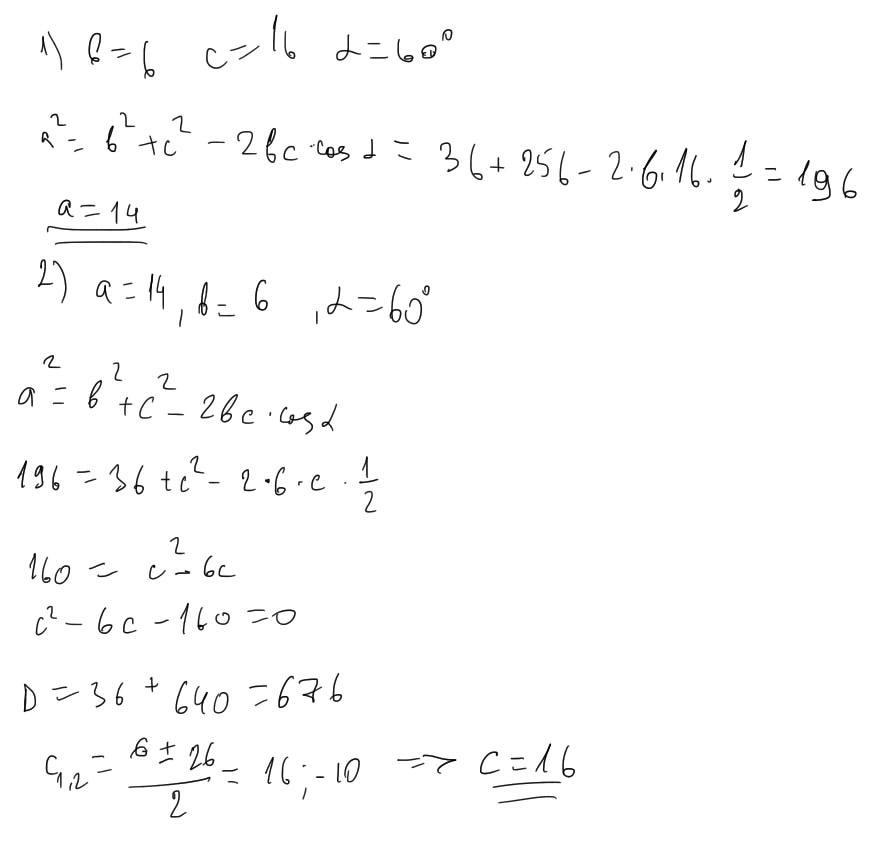 1) b = 6 c = 16 α = 60°
a² = b² + c² - 2bc · cos α = 36 + 256 - 2 · 6 · 16 · 1/2 = 196
a = 14
2) a = 14, b = 6 , α = 60°
a² = b² + c² - 2bc · cos α
196 = 36 + c² - 2 · 6 · c · 1/2
160 = c² - 6c
c² - 6c - 160 = 0
D = 36 + 640 = 676
c₁,₂ = (6 ± 26)/2 = 16 ; -10 => c = 16